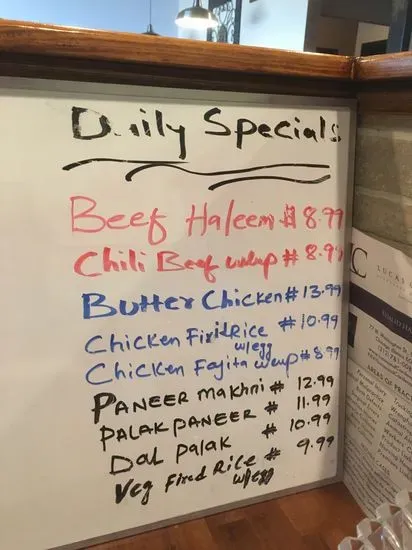 Daily Specials
Beef Haleem $ 8.99
Chili Beef wrap # 8.99
Butter Chicken # 13.99
Chicken Fird Rice # 10.99
w/egg
Chicken Fajita wrap # 8.99
PANEER makhni # 12.99
PALAK PANEER # 11.99
Dal Palak # 10.99
Veg Fired Rice # 9.99
w/egg
LUCAS
AREAS OF PRAC